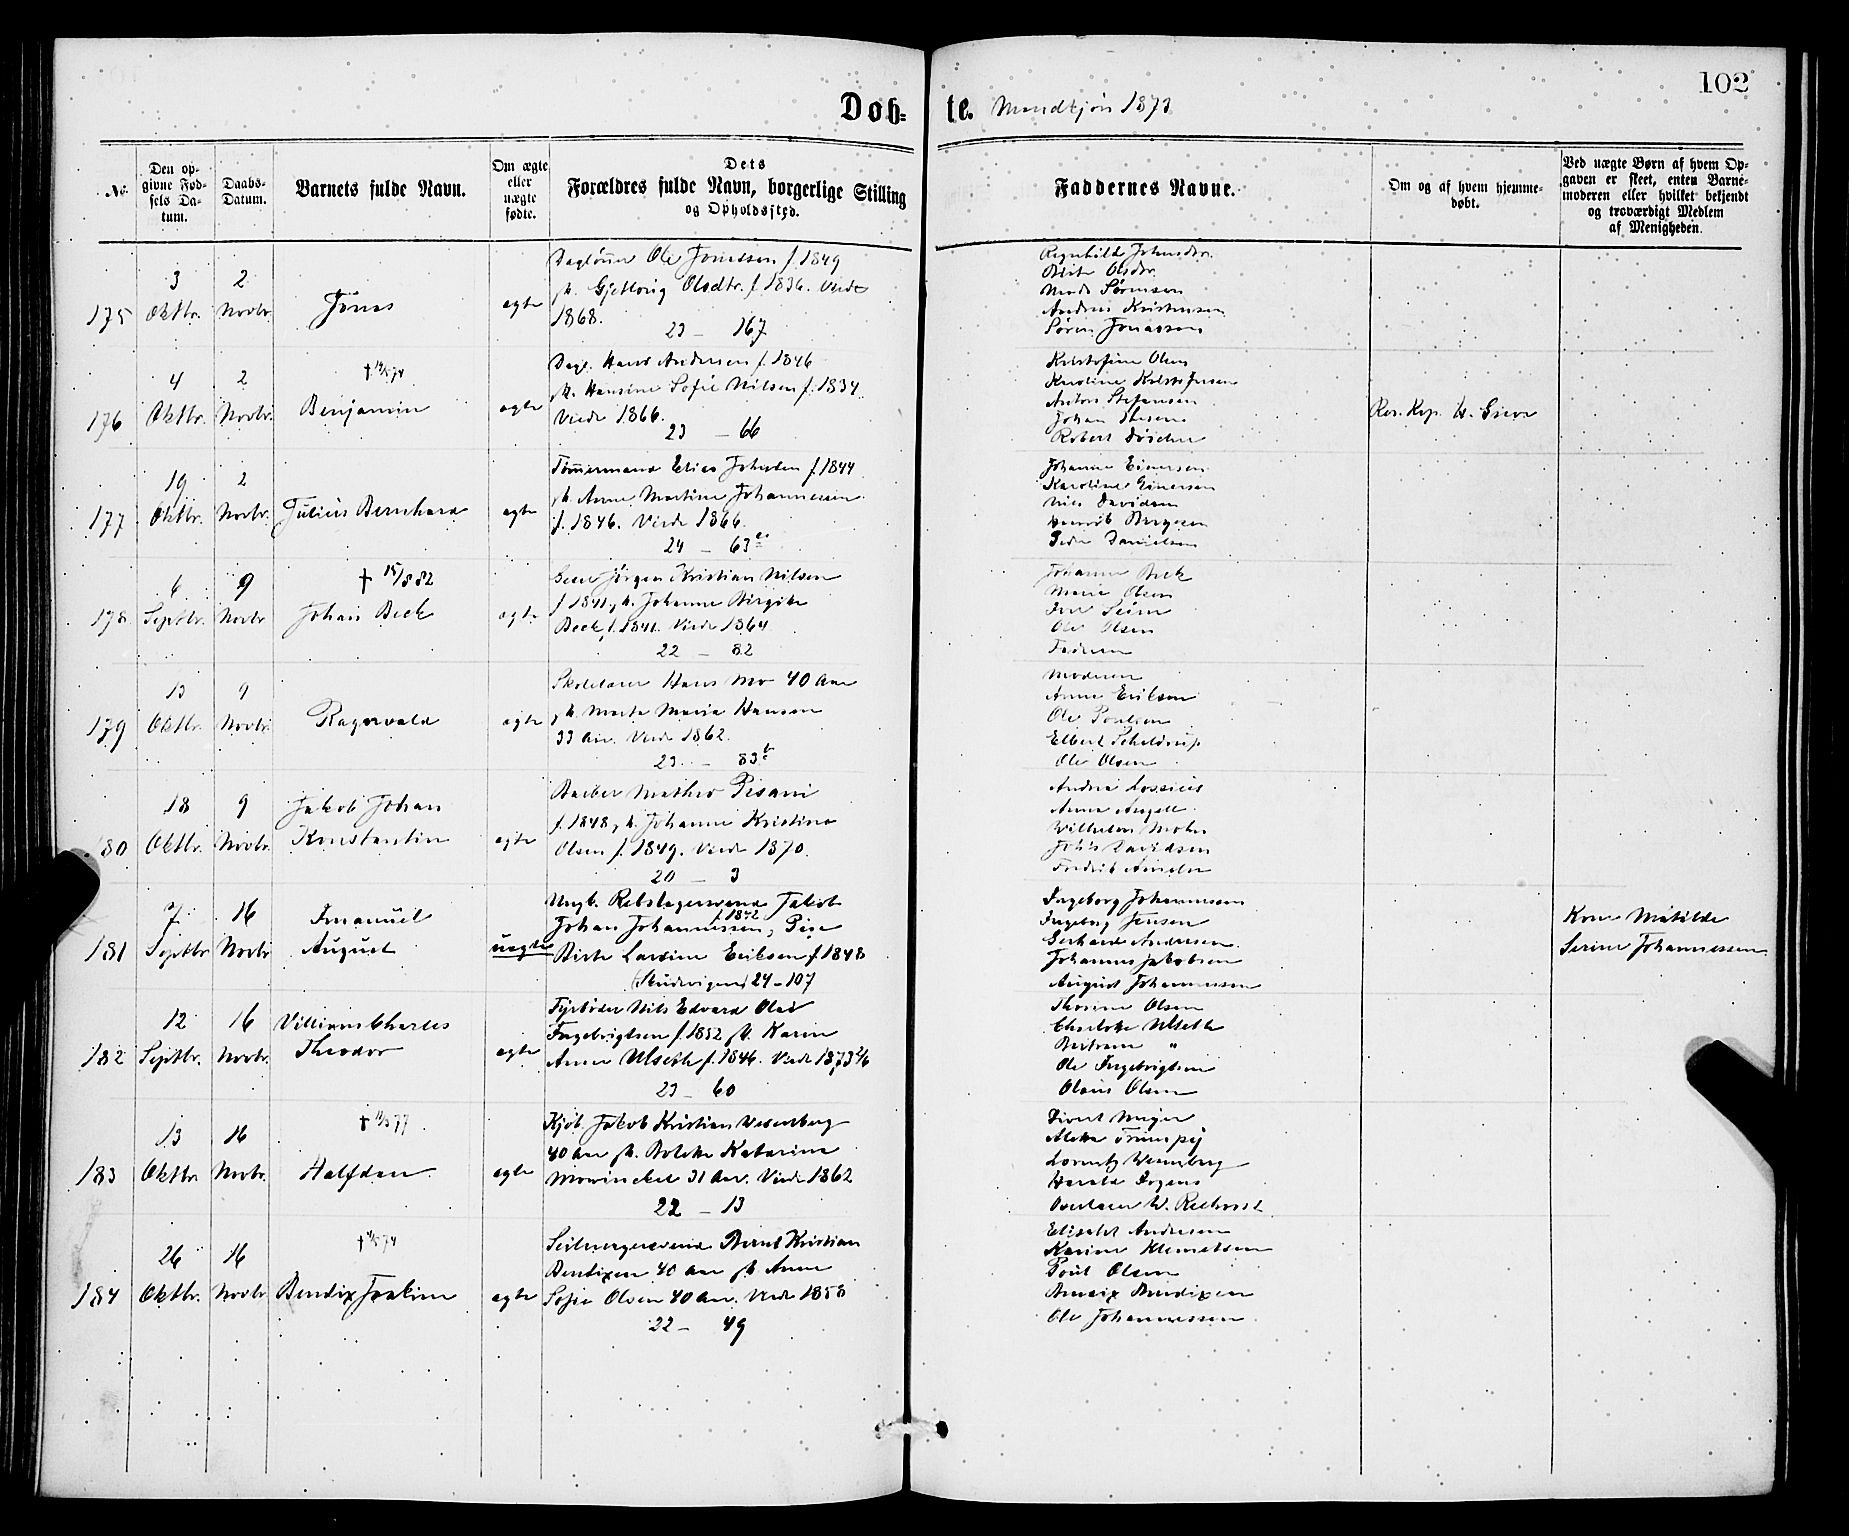 102
Døb- te. Mandkjøn 1873
No.
Den op-
givne Fød-
sels Da-
tum.
Daabs-
Datum.
Barnets fulde Navn.
Om ægte
eller
uægte
fødte.
Dets
Forældres fulde Navn, borgerlige Stilling
og Opholdssted.
Faddernes Navne.
Om og af hvem hjemme-
døbt.
Ved uægte Børn af hvem Op-
gaven er skeet, enten Barne-
moderen eller hvilket bekjendt
og troværdigt Medlem
af Menigheden.
175
3
Oktbr.
2
Novbr.
Jonas
ægte
Dagløner Ole Jonassen f. 1849
Olsdtr. f. 1836. Viede
1868.
23 — 167
Olsdtr.
Mads Sørensen
Andreas Kristensen
Søren Jonassen
176
4
Oktbr.
2
Novbr.
Benjamin
ægte
Dagl. Hans Andersen f. 1846
h. Hansine Sofie Nilsen f. 1834.
Viede 1866.
23 — 66
Kristofine Olsen
Karoline Kristofersen
Anton Stefansen
Johan
Robert
Res. Kap.
177
19
Oktbr.
2
Novbr.
Julius Bernhard
ægte
Tømmermand Elias Johnsen f. 1844
h. Anne Martine Johannessen
f. 1846. Viede 1866.
24 — 63
Johanne Einersen
Karoline Einersen
Nils Davidsen
Peder Danielsen
178
6
Septbr.
9
Novbr.
† 15/8 82
Johan Beck
ægte
Jørgen Kristian Nilsen
f. 1841, h. Johanne Birgitte
Beck, f. 1841. Viede 1864
22 — 82
Johanne Beck
Marie Olsen
Ole Olsen
Faderen
179
13
Oktbr.
9
Novbr.
Ragnvald
ægte
Skolelærer Hans Mo 40 Aar
h. Marta Maria Hansen
33 Aar. Viede 1862.
23 — 83
Moderen
Anne Eriksen
Ole Poulsen
Elbert Scheldrup
Ole Olsen
180
18
Oktbr.
9
Novbr.
Jakob Johan
Konstantin
ægte
Barber Matheo Pisani
f. 1848, h. Johanne Kristine
Olsen f. 1849. Viede 1870.
20 — 3
Andrea Lossius
Anna Angell
Wilhelm Mohn
Johs Davidsen
Fredrik
181
7
Septbr.
16
Novbr.
Imanuel
August
uægte
Ungk. Rebslagersvend Jakob
Johan Johannessen, f. 1842 Pige
Birte Lavine Eriksen f. 1848
(Skudevigen) 24 — 107
Ingeborg Johannessen
Ingeborg Jensen
Gerhard Andersen
Johannes Jakobsen
August Johannessen
Kone Matilde
Serine Johannessen
182
12
Septbr.
16
Novbr.
Villiam Charles
Theodor
ægte
Fyrbøder Nils Edvard Olai
Ingebrigtsen f. 1852 h. Karen
Anna Ulseth f. 1846. Viede 1873 2/6
23 — 60
Thorine Olsen
Charlotte Ulseth
Bertram "
Ole Ingebrigtsen
Olaus Olsen
183
13
Oktbr.
16
Novbr.
Halfdan
ægte
Kjøb. Jakob Kristian Wesenberg
40 Aar h. Bolette Katarina
Mowinckel 31 Aar. Viede 1862
22 — 13
Meyer
Trumpy
Lorentz Wesenberg
Harald Irgens
184
26
Oktbr.
16
Novbr.
Bendix Joakim
ægte
Seilmagersvend Bernt Kristian
Bendixen 40 Aar h. Anne
Sofie Olsen 40 Aar. Viede 1858
22 — 49
Elisabet Andersen
Karine Klemetsen
Poul Olsen
Bendix Bendixen
Ole Johannessen